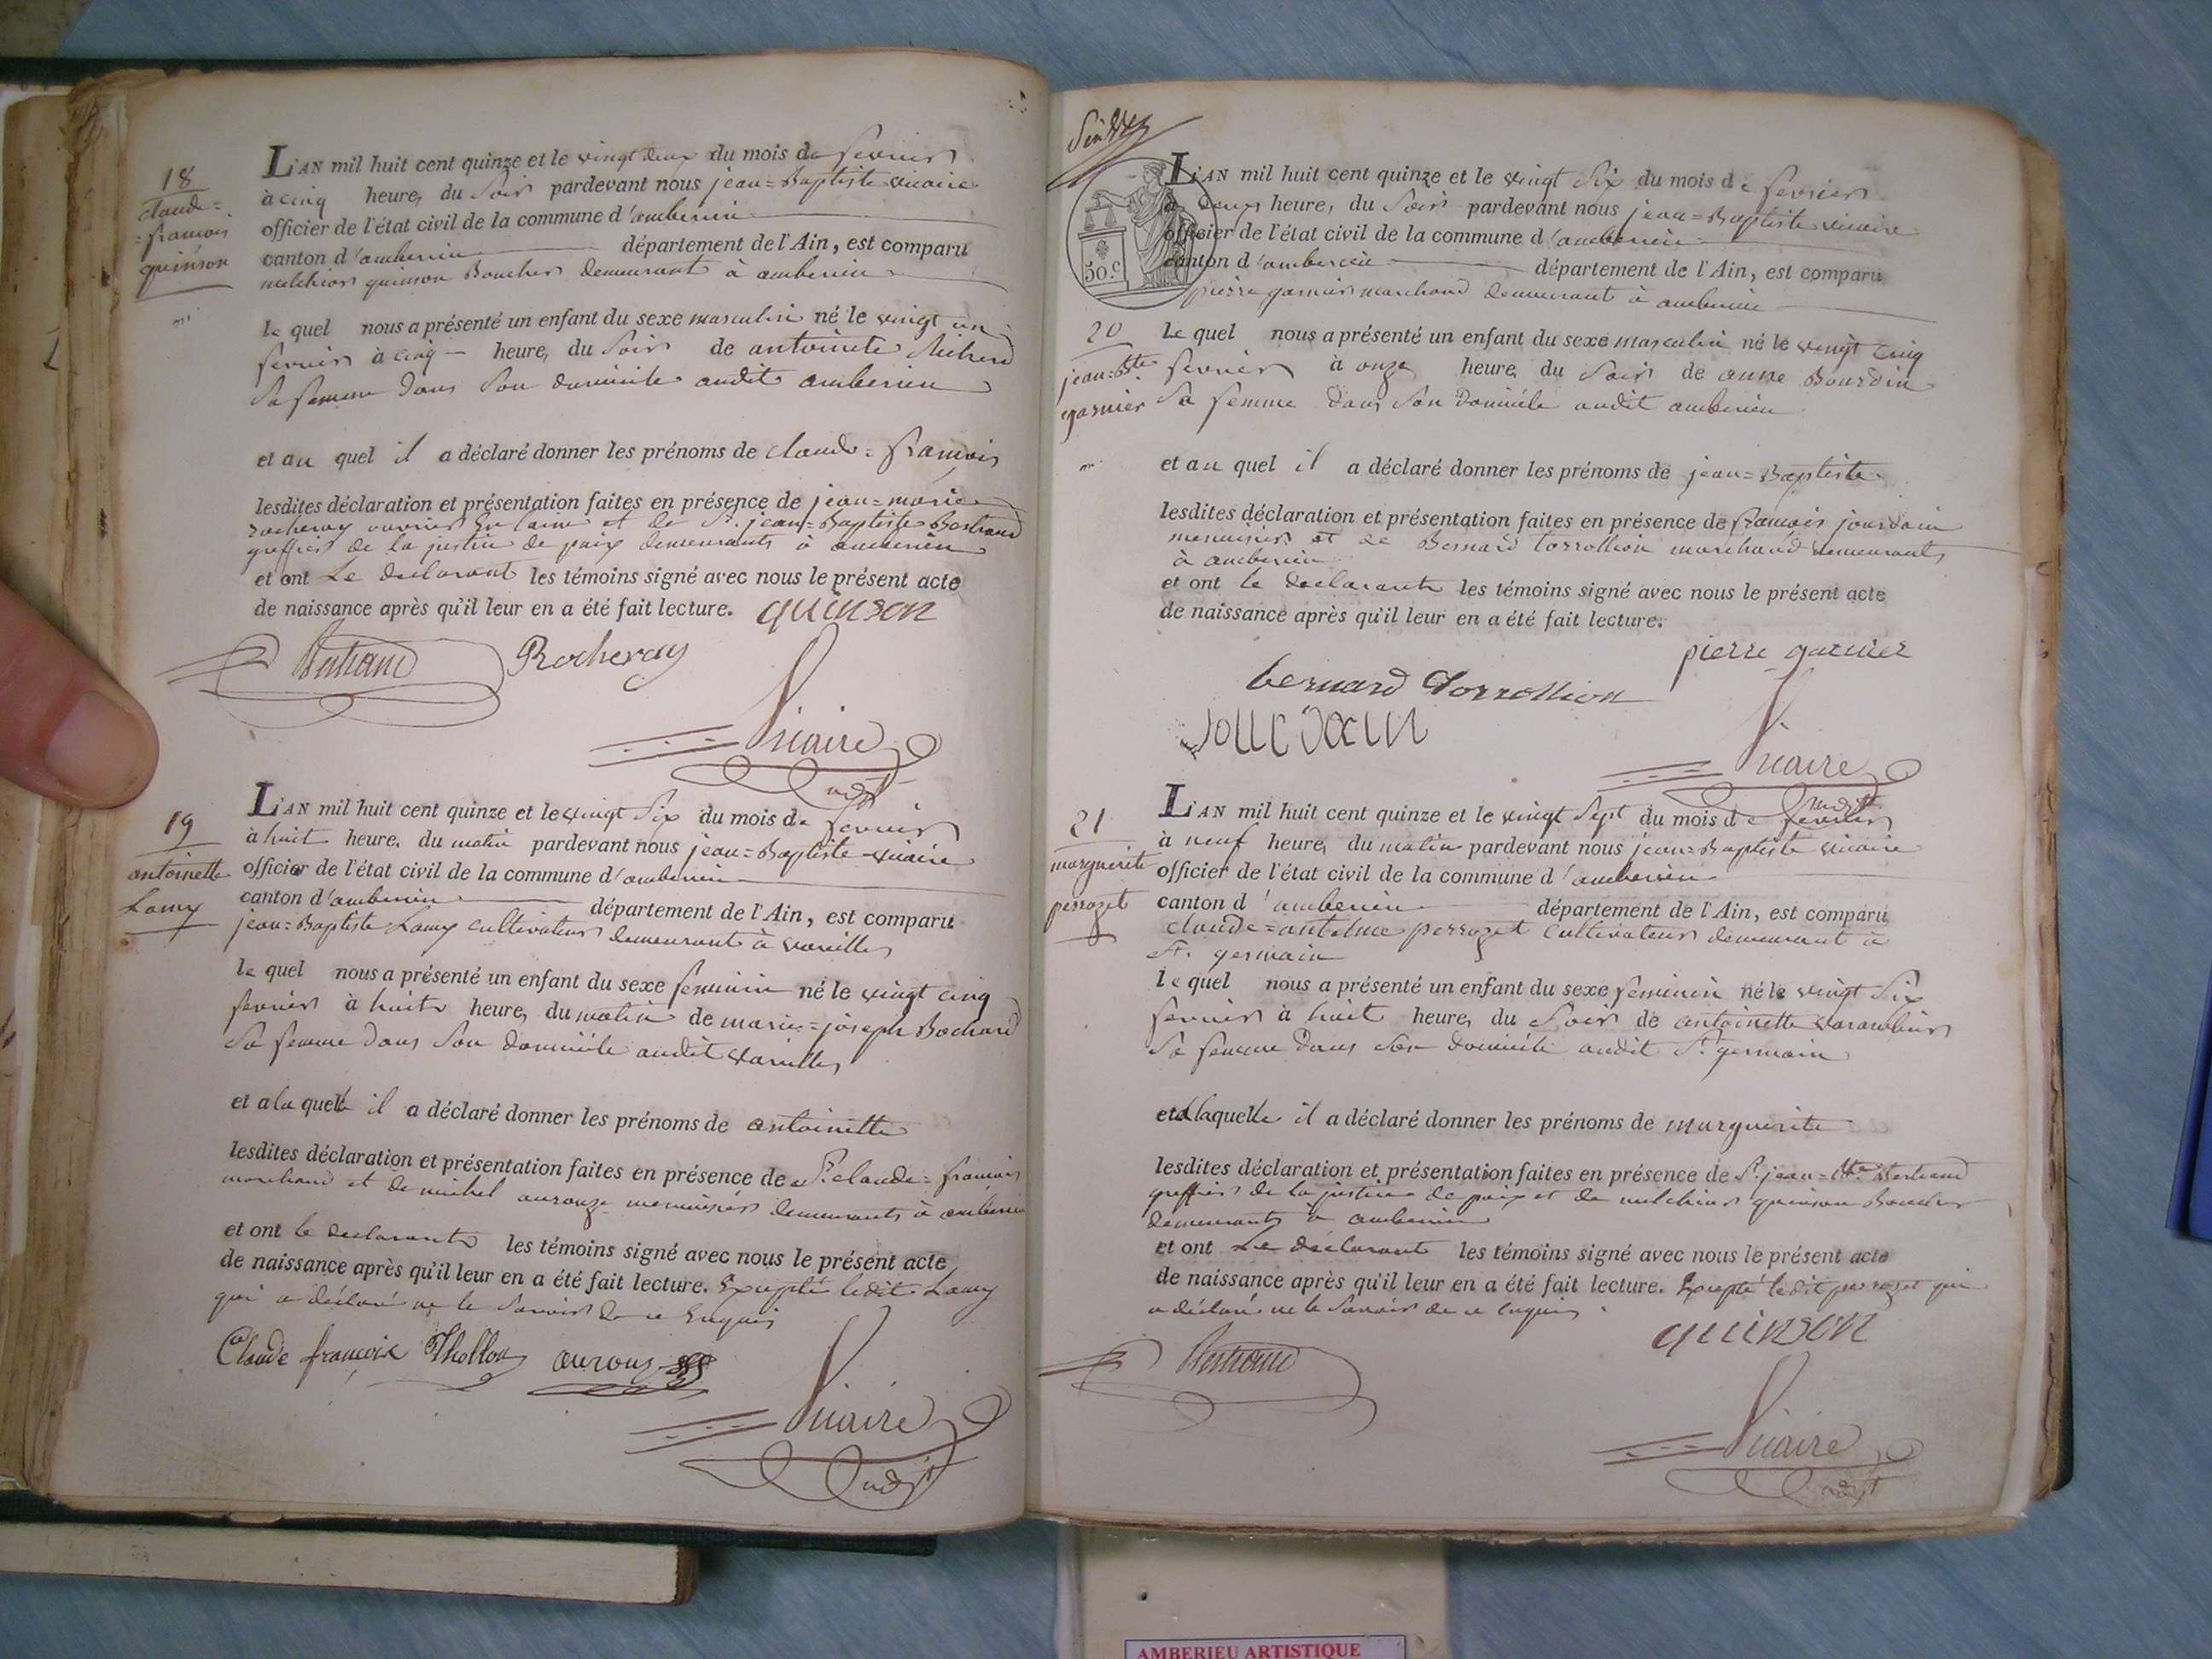 18
claude=
=francois
quinson
L'AN mil huit cent quinze et le vingt deux du mois de fevrier
à cinq heure, du Soir pardevant nous jean=Baptiste vicaire
officier de l'état civil de la commune d'amberieu
canton d'amberieu département de l'Ain, est comparu
melchior quinson Boucher demeurant à amberieu
le quel nous a présenté un enfant du sexe masculin né le vingt un
fevrier à cinq heure, du Soir de antoinete
Sa femme dans Son domicile audit amberieu
et au quel il a déclaré donner les prénoms de claude=francois
lesdites déclaration et présentation faites en présence de jean=marie
Rocheray ouvrier en laine et de Sr. jean=Baptiste Bertrand
greffier de la justice de paix demeurants à amberieu
et ont Le declarant les témoins signé avec nous le présent acte
de naissance après qu'il leur en a été fait lecture. quinson
Bertrand Rocheray
Vicaire
adjt
19
antoinette
Lamy
L'AN mil huit cent quinze et le vingt Six du mois de fevrier
à huit heure, du matin pardevant nous jean=Baptiste vicaire
officier de l'état civil de la commune d'amberieu
canton d'amberieu département de l'Ain, est comparu
jean=Baptiste Lamy cultivateur demeurant à vareilles
le quel nous a présenté un enfant du sexe feminin né le vingt cinq
fevrier à huit heure, du matin de marie=joseph Bochard
Sa femme dans Son domicile audit vareilles
et a la quelle il a déclaré donner les prénoms de antoinette
lesdites déclaration et présentation faites en présence de Sr. claude=francois
marchand et de michel aurouze menuisier demeurants à amberieu
et ont le declarant les témoins signé avec nous le présent acte
de naissance après qu'il leur en a été fait lecture. Excepté ledit Lamy
qui a déclaré ne le Savoir de ce Enquis
Claude françois Thollon aurouze
Vicaire
adjt
50.c
L'AN mil huit cent quinze et le vingt Six du mois de fevrier
à deux heure, du Soir pardevant nous jean=Baptiste vicaire
officier de l'état civil de la commune d'amberieu
canton d'amberieu département de l'Ain, est comparu
pierre garnier marchand demeurant à amberieu
20
jean=Bte
garnier
le quel nous a présenté un enfant du sexe masculin né le vingt cinq
fevrier à onze heure, du Soir de anne Bourdin
Sa femme dans Son domicile audit amberieu
et au quel il a déclaré donner les prénoms de jean=Baptiste
lesdites déclaration et présentation faites en présence de francois jourdain
menuisier et de Bernard torrollion marchand demeurants
à amberieu
et ont le declarant les témoins signé avec nous le présent acte
de naissance après qu'il leur en a été fait lecture.
pierre garnier
bernard torrollion
jourdain
Vicaire
adjt
21
marguerite
perrozet
L'AN mil huit cent quinze et le vingt Sept du mois de fevrier
à neuf heure, du matin pardevant nous jean=Baptiste vicaire
officier de l'état civil de la commune d'amberieu
canton d'amberieu département de l'Ain, est comparu
claude=antelme perrozet Cultivateur demeurant à
St. germain
le quel nous a présenté un enfant du sexe feminin né le vingt Six
fevrier à huit heure, du Soir de antoinette
Sa femme dans Son domicile audit St. germain
et a laquelle il a déclaré donner les prénoms de marguerite
lesdites déclaration et présentation faites en présence de Sr. jean=Bte Bertrand
greffier de la justice de paix et de melchior quinson Boucher
demeurants à amberieu
et ont Le déclarant les témoins signé avec nous le présent acte
de naissance après qu'il leur en a été fait lecture. Excepté ledit perrozet qui
a déclaré ne le Savoir de ce enquis
quinson
Bertrand
Vicaire
adjt
AMBERIEU ARTISTIQUE